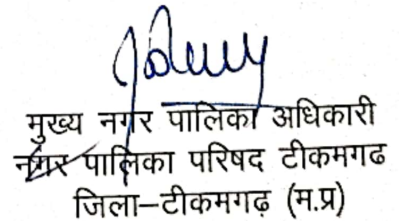 मुख्य नगर पालिका अधिकारी
नगर पालिका परिषद टीकमगढ
जिला–टीकमगढ (म.प्र)